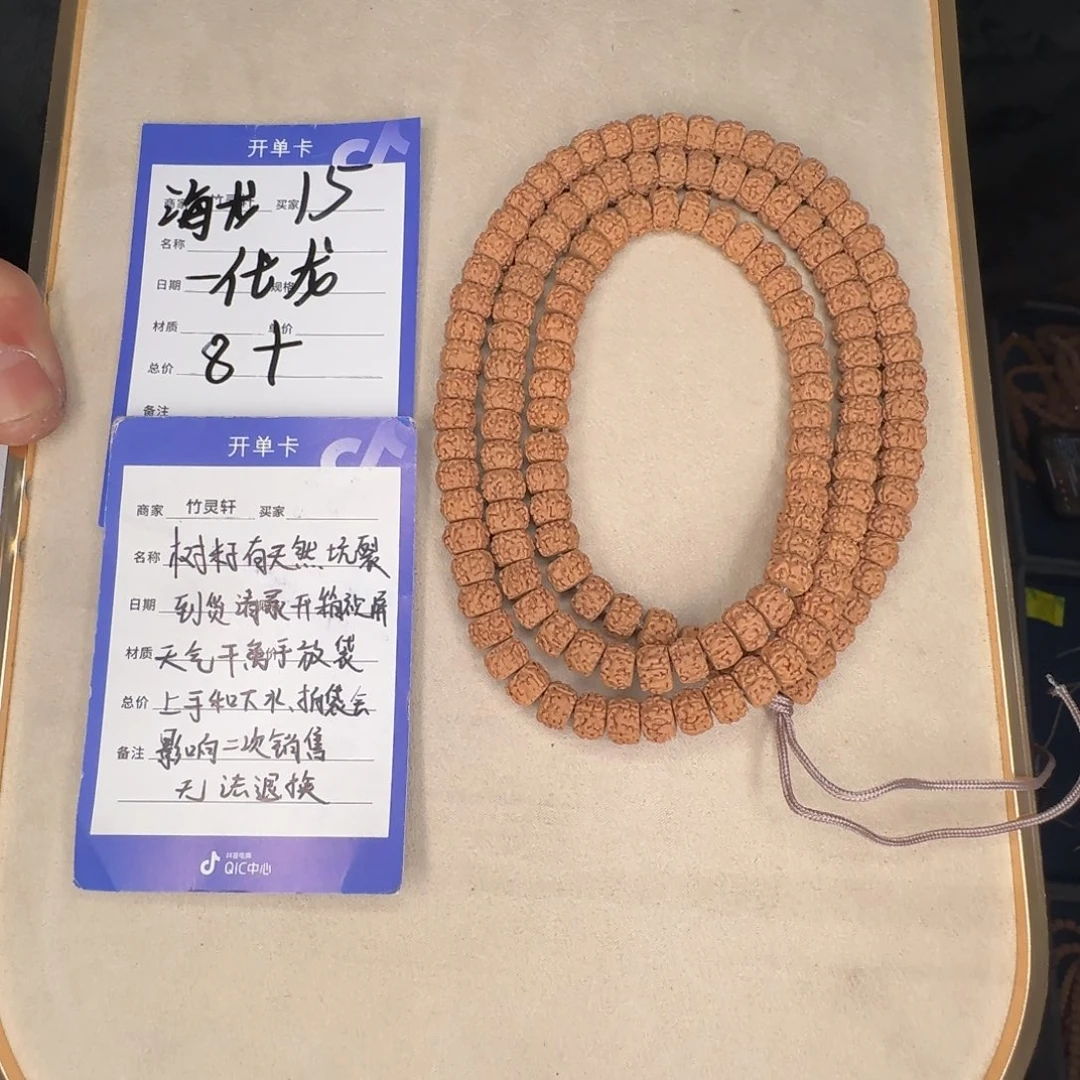 开单卡
海龙 15
买家
名称
日期 一代龙 规格
材质 单价
总价 8十
备注
开单卡
商家 竹灵轩 买家
名称 树籽有天然坑裂
日期 到货请录开箱视屏
材质 天气干离于放袋
总价 上手和下水、拍袋会
备注 影响二次销售
无法退换
抖音电商
QIC中心